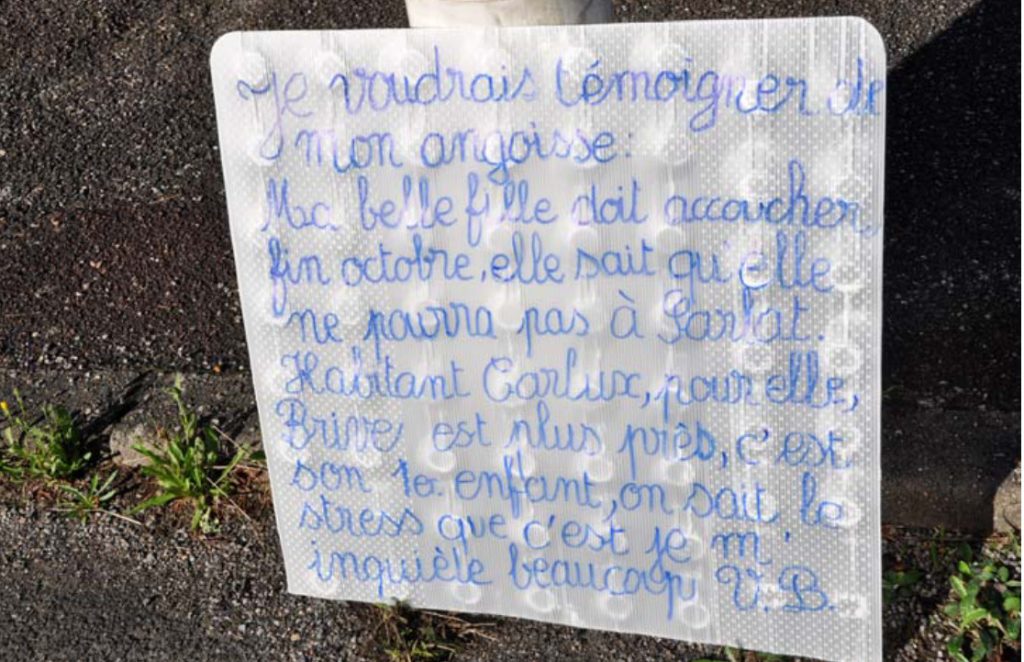 Je voudrais témoigner de
mon angoisse:
Ma belle fille doit accoucher,
fin octobre, elle sait qu'elle
ne pourra pas à Sarlat.
Habitant Carlux, pour elle,
Brive est plus près, c'est
son 1er enfant, on sait le
stress que c'est je m'
inquiète beaucoup V.B.